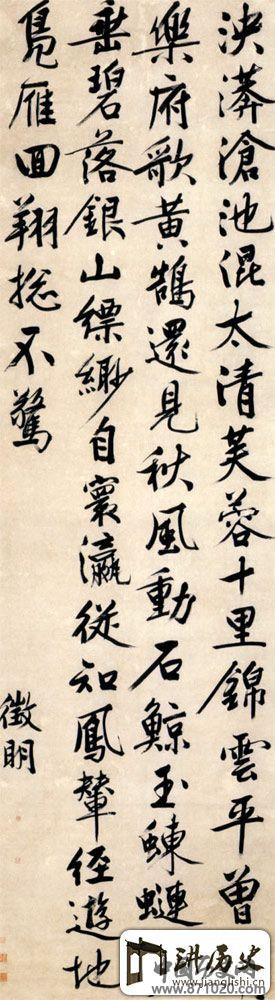 泱漭滄池混太清芙蓉十里錦雲平曾
樂府歌黃鵠還見秋風動石鯨玉蝀
垂碧落銀山縹緲自寰瀛從知鳳輦經遊地
鳧雁回翔揔不驚
徵明
讲历史
www.jianglishi.cn
www.871020.com